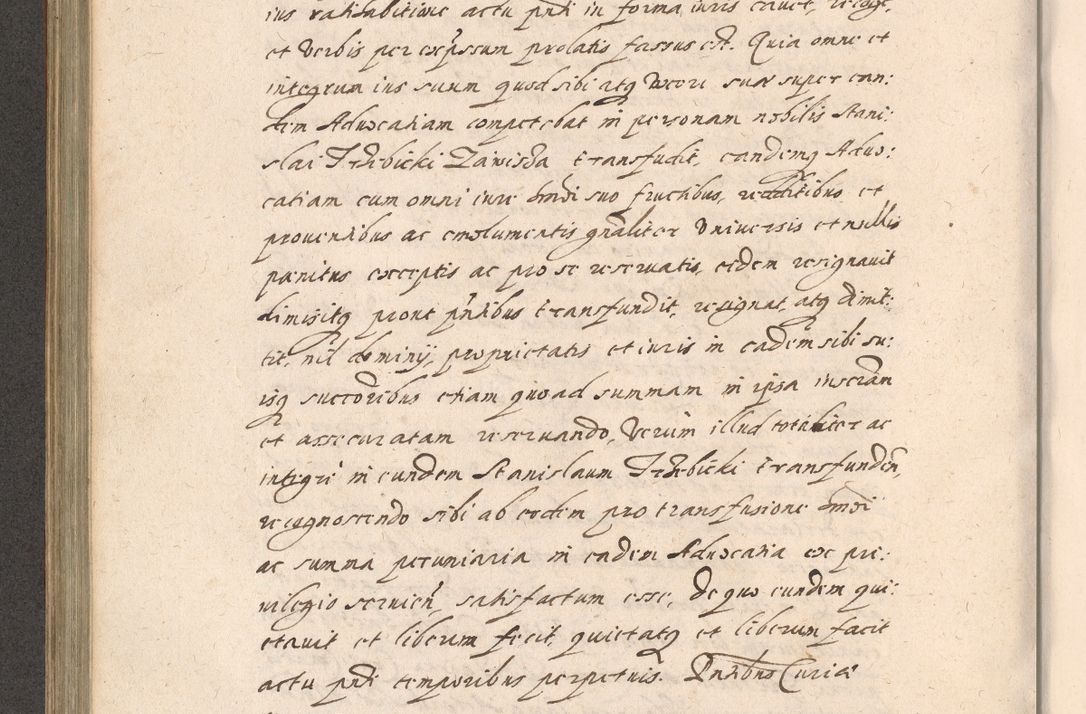 ius ratihabitione actu pnti in forma iuris cavet, recogt,
et verbis per expssum prolatis fassus est. Quia omne et
integrum ius suum quod sibi atq uxori suae super ean:
dem Advocatiam competebat in personam nobilis Stani:
slai Trzebicki Zawisza transfudit, eandemq Advo:
catiam cum omni iure hmdi suo fructibus, redditibus et
proventibus ac emolumentis gnaliter universis et nullis
paenitus exceptis ac pro se reservatis, eidem resignavit
dimisitq prout pntibus transfundit, resignat, atq dimit:
tit, nil dominij, proprietatis et iuris in eadem sibi su:
isq succoribus etiam quoad summam in ipsa inscram
et assecuratam reservando, Verum illud totaliter ac
integre in eundem Stanislaum Trzebicki transfunden,
recognoscendo sibi ab eodem pro transfusione hmdi
ac summa pecuniaria in eadem Advocatia ex pri:
vilegio servien, satisfactum esse, de quo eundem qui:
etavit et liberum fecit, quietatq et liberum facit
actu pnti temporibus perpetuis. Pntibus Curiae